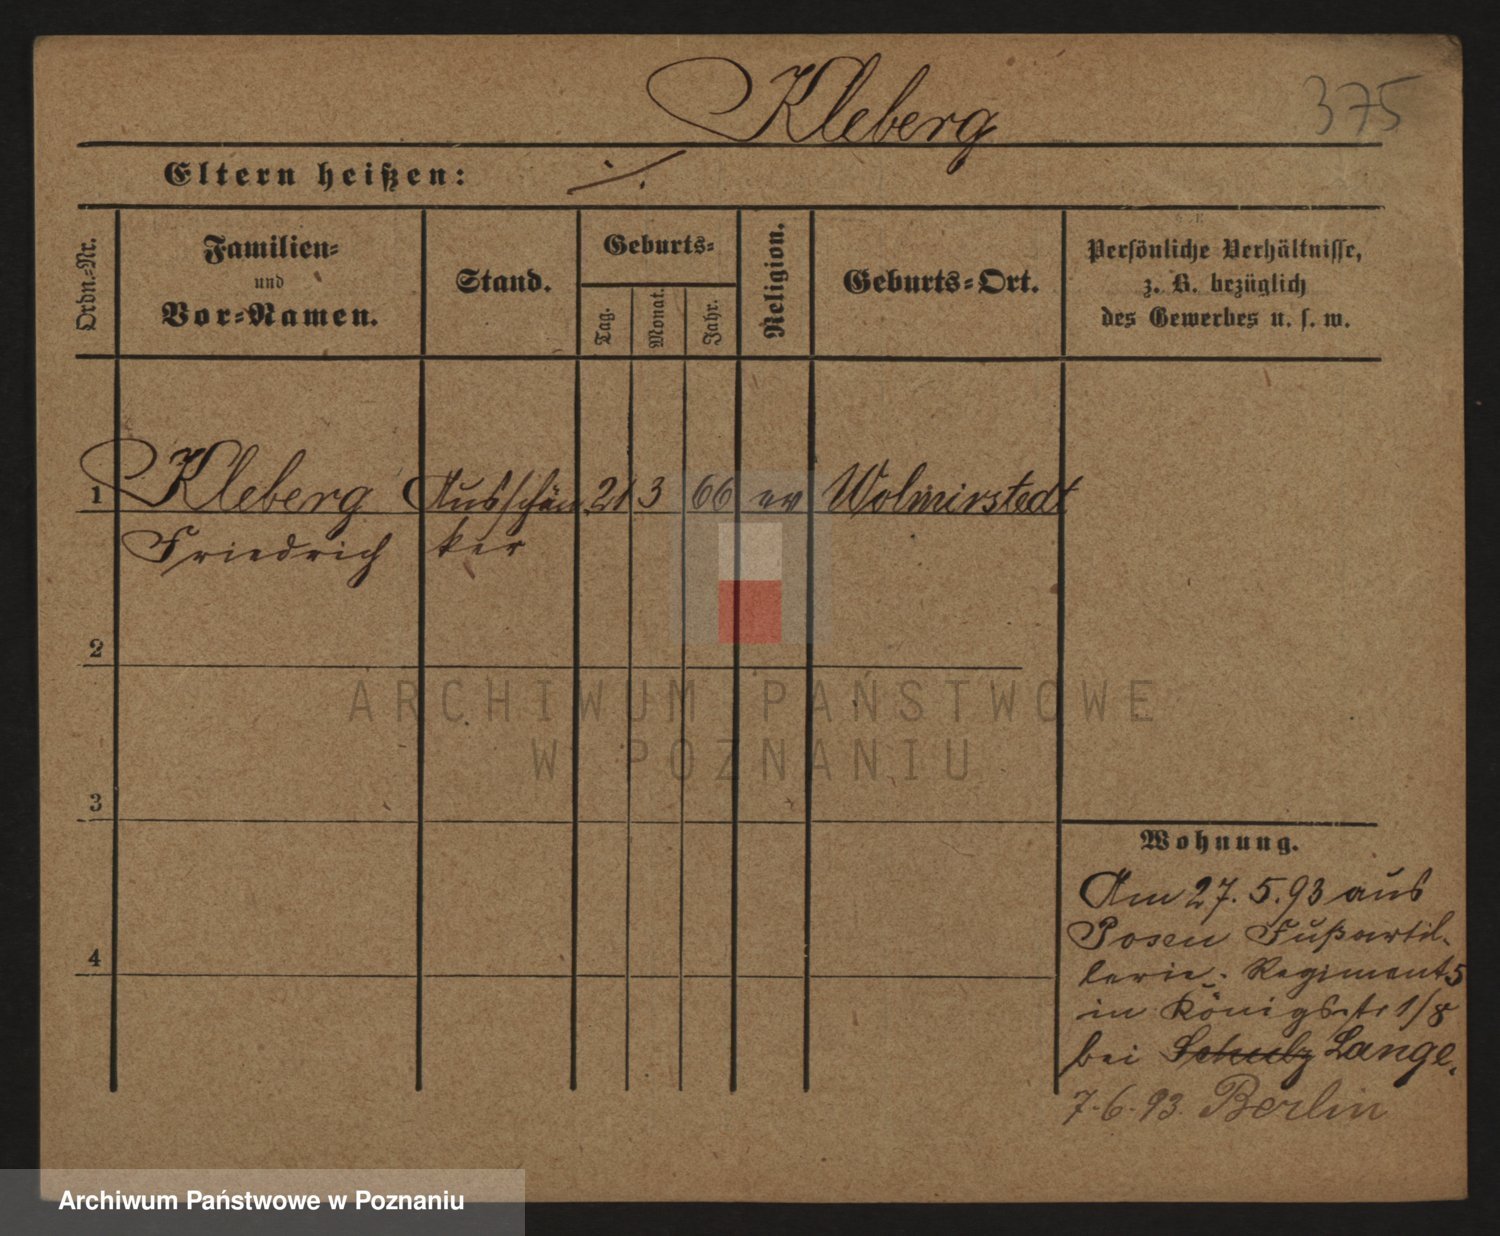 Kleberg
375
Eltern heißen: ./.
Ordn.-Nr.
Familien-
und
Vor-Namen.
Stand.
Geburts-
Tag.
Monat.
Jahr.
Religion.
Geburts-Ort.
Persönliche Verhältnisse,
z. B. bezüglich
des Gewerbes u. s. w.
1 Kleberg Ausschän 21 3 66 ev Wolmirstedt
Friedrich ker
2
ARCHIWUM PAŃSTWOWE
W POZNANIU
3
4
Wohnung.
Am 27. 5. 93 aus
Posen Fußartil-
lerie-Regiment 5
in Königsstr 1/8
bei Schulz Lange.
7.6.93. Berlin
Archiwum Państwowe w Poznaniu